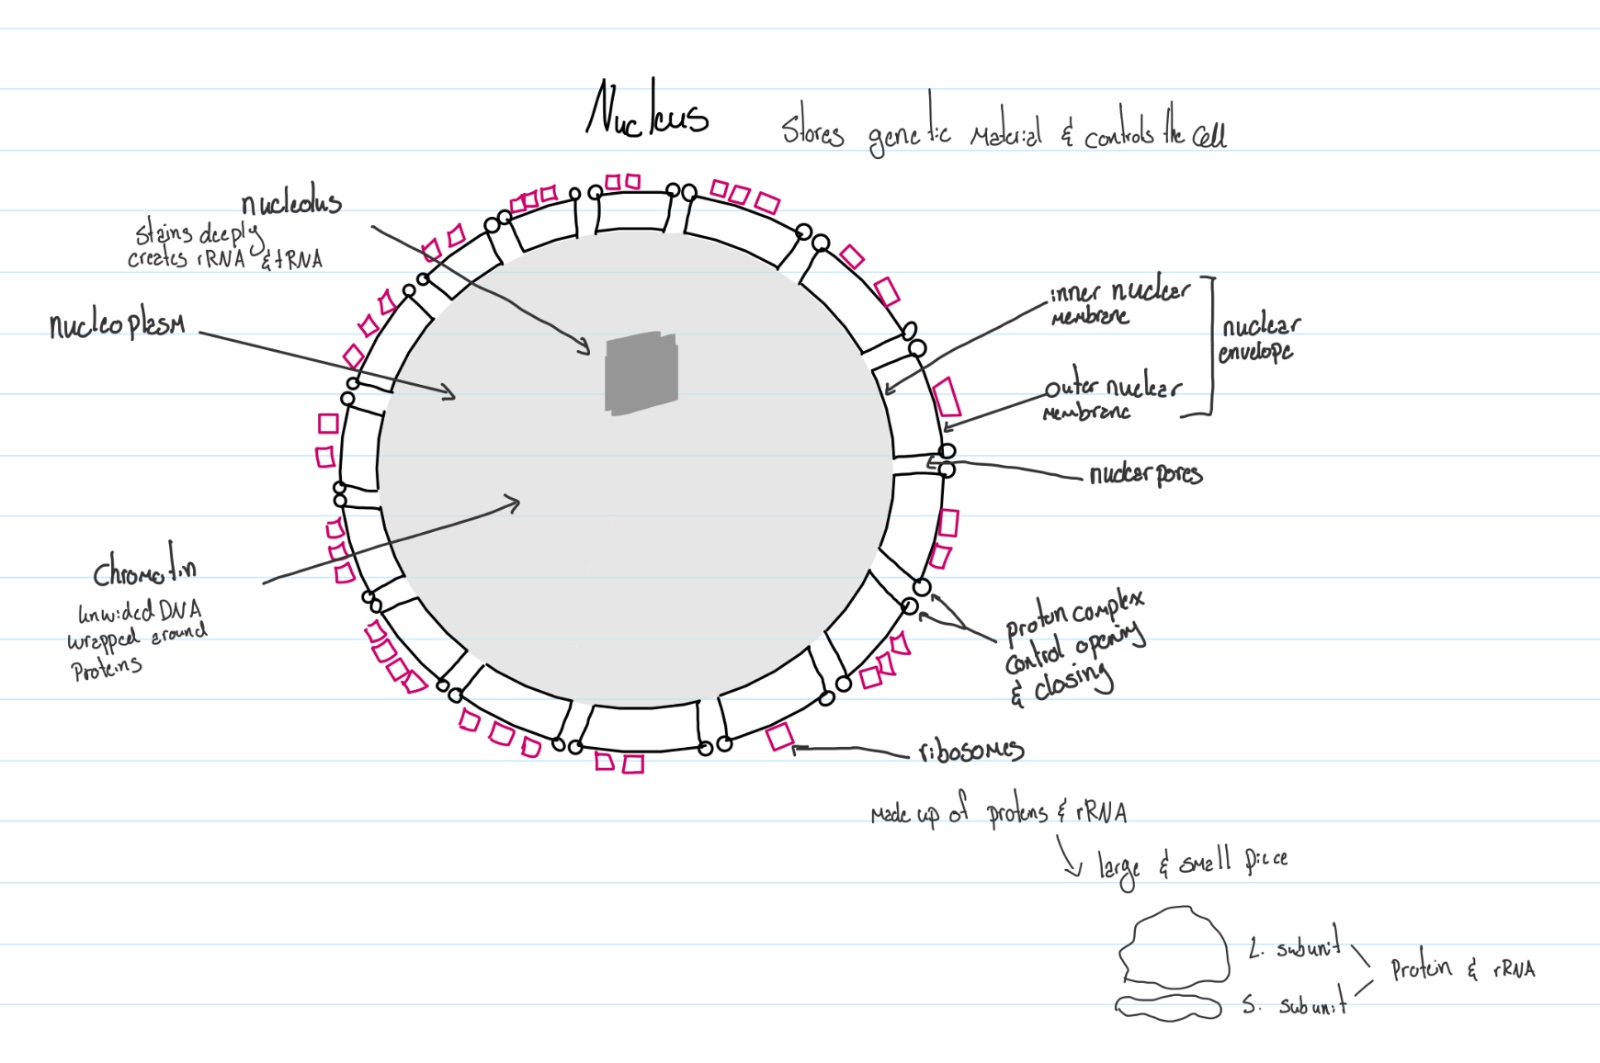 Nucleus
Stores genetic Material & controls the cell
nucleolus
Stains deeply
creates rRNA & tRNA
nucleoplasm
inner nuclear
membrane
nuclear
envelope
outer nuclear
membrane
nuclear pores
chromatin
Unwided DNA
wrapped around
Proteins
protein complex
control opening
& closing
ribosomes
Made up of proteins & rRNA
large & small piece
L. subunit
Protein & rRNA
S. subunit